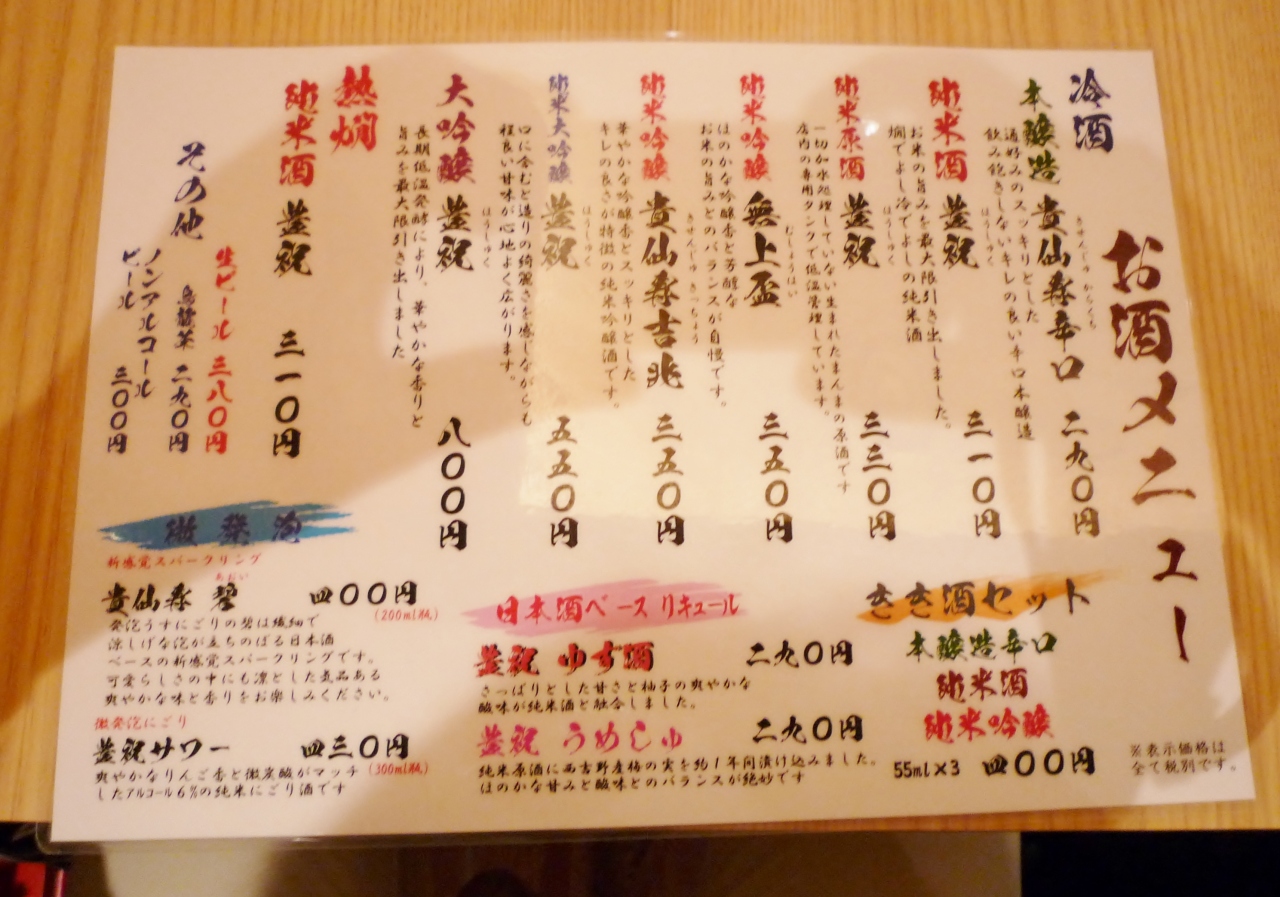 お酒メニュー
冷酒
本醸造 貴仙寿辛口 二九〇円
きせんじゅ からくち
通好みのスッキリとした
飲み飽きしないキレの良い辛口本醸造
純米酒 豊祝 三一〇円
ほうしゅく
お米の旨みを最大限引き出しました。
燗でよし冷でよしの純米酒
純米原酒 豊祝 三三〇円
ほうしゅく
一切加水処理していない生まれたまんまの原酒です
店内の専用タンクで低温管理しています。
純米吟醸 無上盃 三五〇円
むじょうはい
ほのかな吟醸香と芳醇な
お米の旨みとのバランスが自慢です。
純米吟醸 貴仙寿吉兆 三五〇円
きせんじゅ きっちょう
華やかな吟醸香とスッキリとした
キレの良さが特徴の純米吟醸酒です。
純米大吟醸 豊祝 五五〇円
ほうしゅく
口に含むと造りの綺麗さを感じながらも
程良い甘味が心地よく広がります。
大吟醸 豊祝 八〇〇円
ほうしゅく
長期低温発酵により、華やかな香りと
旨みを最大限引き出しました
熱燗
純米酒 豊祝 三一〇円
その他
生ビール 三八〇円
烏龍茶 二九〇円
ノンアルコール
ビール 三〇〇円
きき酒セット
本醸造辛口
純米酒
純米吟醸
55ml×3 四〇〇円
日本酒ベース リキュール
豊祝 ゆず酒 二九〇円
さっぱりとした甘さと柚子の爽やかな
酸味が純米酒と融合しました。
豊祝 うめしゅ 二九〇円
純米原酒に西吉野産梅の実を約1年間漬け込みました。
ほのかな甘みと酸味とのバランスが絶妙です
微発泡
新感覚スパークリング
あおい
貴仙寿 碧 四〇〇円
(200ml瓶)
発泡うすにごりの碧は繊細で
涼しげな泡が立ちのぼる日本酒
ベースの新感覚スパークリングです。
可愛らしさの中にも凛とした気品ある
爽やかな味と香りをお楽しみください。
微発泡にごり
豊祝サワー 四三〇円
(300ml瓶)
爽やかなりんご香と微炭酸がマッチ
したアルコール6%の純米にごり酒です
※表示価格は
全て税別です。